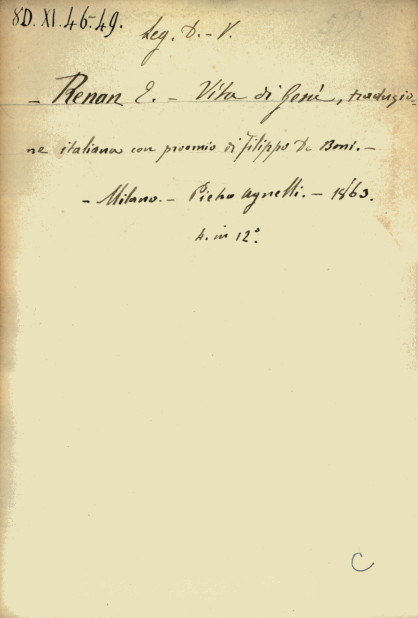 8D. XI. 46-49.
Leg. D. - V.
- Renan E. - Vita di Gesù, traduzio-
ne italiana con proemio di Filippo De Boni. -
- Milano. - Pietro Agnelli. - 1863.
4. in 12°.
C